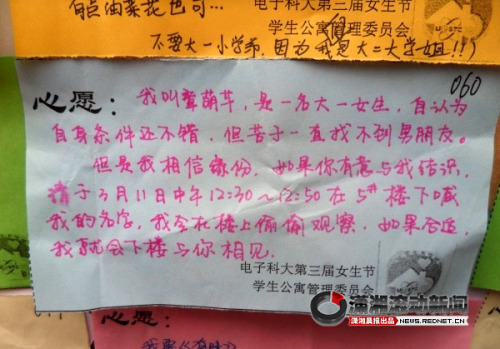 电子科大第三届女生节
学生公寓管理委员会
不要大一小学弟，因为我是大二大学姐!!)
060
心愿：我叫龚萌芊，是一名大一女生，自认为
自身条件还不错，但苦于一直找不到男朋友。
但是我相信缘份，如果你有意与我结识，
请于3月11日中午12:30～12:50在5#楼下喊
我的名字，我会在楼上偷偷观察，如果合适，
我就会下楼与你相见。
电子科大第三届女生节
学生公寓管理委员会
潇湘滚动新闻
潇湘晨报出品 NEWS.REDNET.CN
心愿：